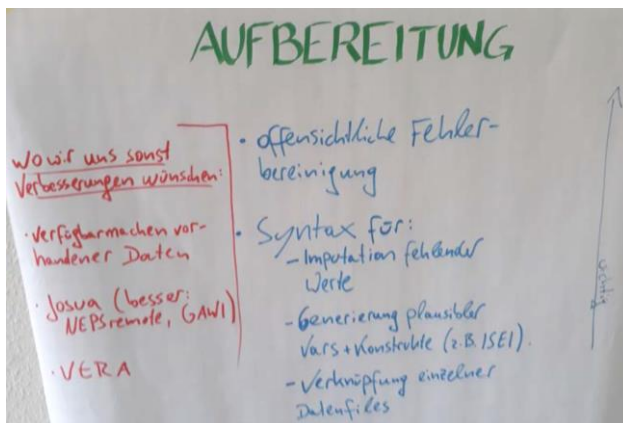 AUFBEREITUNG
wo wir uns sonst
Verbesserungen wünschen:
· Verfügbarmachen vor-
handener Daten
· Josua (besser:
NEPSremote, GAWI)
· VERA
· offensichtliche Fehler-
bereinigung
· Syntax für:
- Imputation fehlender
Werte
- Generierung plausibler
Vars + Konstrukte (z.B. ISEI).
- Verknüpfung einzelner
Datenfiles
wichtig